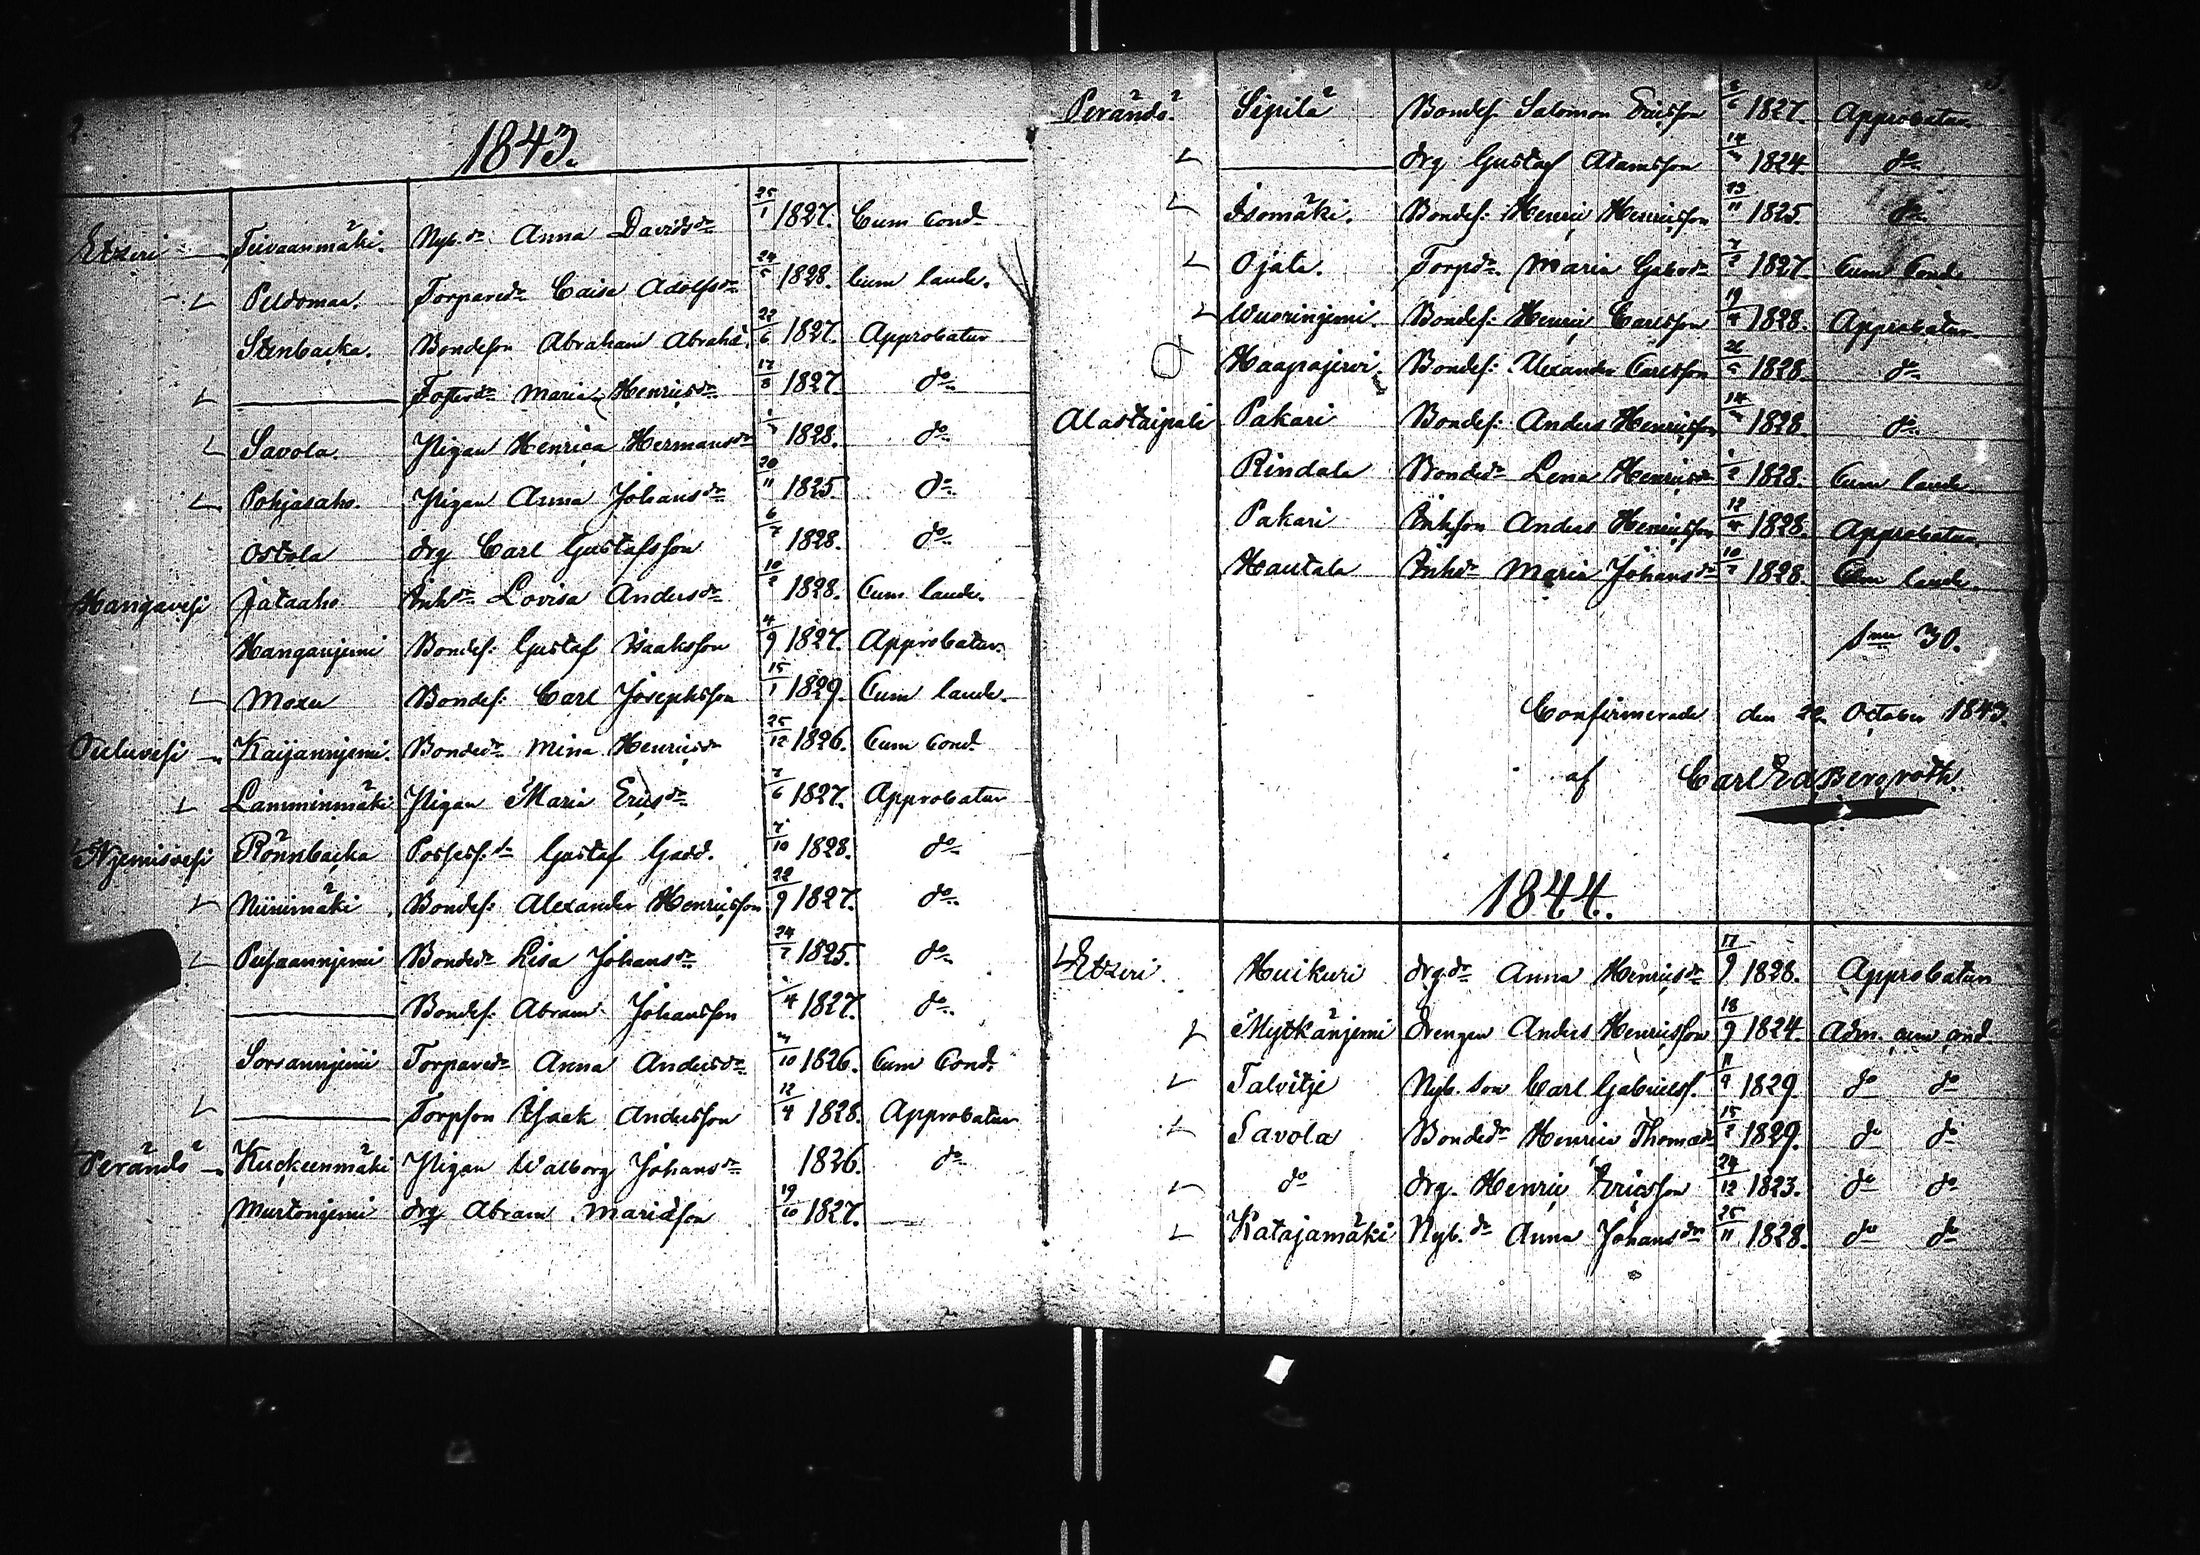 2.
1843.
Etzeri Teivaanmäki. Nyb.dr Anna Davidsdr 25/1 1827. Cum Cond.
Peldomaa. Torparedr Caisa Adolfsdr 1828. Cum laude.
Stenbacka. Bondeson Abraham Abrahs. 22/6 1827. Approbatur
Fosterdr Maria Henricsdr 17/8 1827. do
Savola. Pigan Henrica Hermansdr 1828. do
Pohjasaho. Pigan Anna Johansdr 20/11 1825. do
Ostola drg Carl Gustafsson 1828. do
Hangavesi Jätaaho Enkdr Lovisa Andersdr 10/2 1828. Cum laude.
Hanganjemi Bondes: Gustaf Isaaksson 4/9 1827. Approbatur
Moxu Bondes: Carl Josephsson 15/1 1829. Cum laude.
Kaijannjemi. Bondedr Mina Henricsdr 25/12 1826. Cum Cond.
Lamminmäki Pigan Maria Ericsdr 1827. Approbatur
Njemisvesi Rönnbacka Gustaf Gadd. 7/10 1828. do
Niinimäki Bondes: Alexander Henricsson 22/9 1827. do
Bondedr Lisa Johansdr 1825. do
Bondes: Abram Johansson 1827. do
Sorsannjemi Torparedr Anna Andersdr 1826. Cum Cond.
Torpson Isaak Andersson 12/4 1828. Approbatur
Perändö Kuckunmäki Pigan Walborg Johansdr 1826. do
Murtonjemi drg Abram Mariasson 19/10 1827.
3.
Perändö Sipilä Bondes. Salomon Ericsson 1827. Approbatur
drg Gustaf Adamsson 1824. do
Isomäki. Bondes: Henric Henricsson 23/11 1825. do
Ojala. Torpdr. Maria Gabrdr 1827. Cum Cond.
Wuorinjemi. Bondes: Henric Carlsson 1828. Approbatur
Haapajervi. Bondes: Alexander Carlsson 1828. do
Alastaipali Pakari Bondes: Anders Henricsson 1828. do
Rindala Bondedr Lena Henricsdr 1828. Cum laude
Pakari Enkson Anders Henricsson 1828. Approbatur
Hautala Enkdr Maria Johansdr 1828. Cum laude
Sma 30.
Confirmerade den October 1843.
af Carl Ed Bergroth.
1844.
Etzeri. Huikuri drg.dr Anna Henricsdr 17/9 1828. Approbatur
Mytkänjemi drengen Anders Henricsson 18/9 1824. Adm. cum cond.
Talvitje Nyb. son Carl Gabrielss. 1829. do do
Savola Bondedr Henrica Thomaedr 1829. do do
do drg. Henric Ericsson 24/12 1823. do do
Katajamäki Nyb.dr Anna Johansdr 25/11 1828. do do